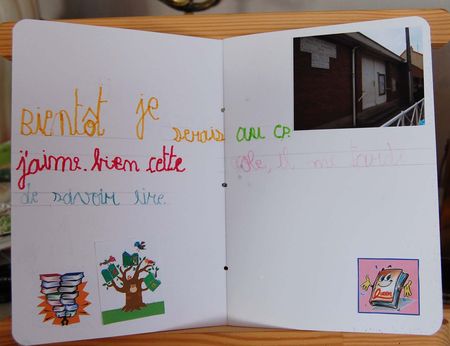 Bientôt je serais au CP.
j'aime bien cette école, il me tarde
de savoir lire.